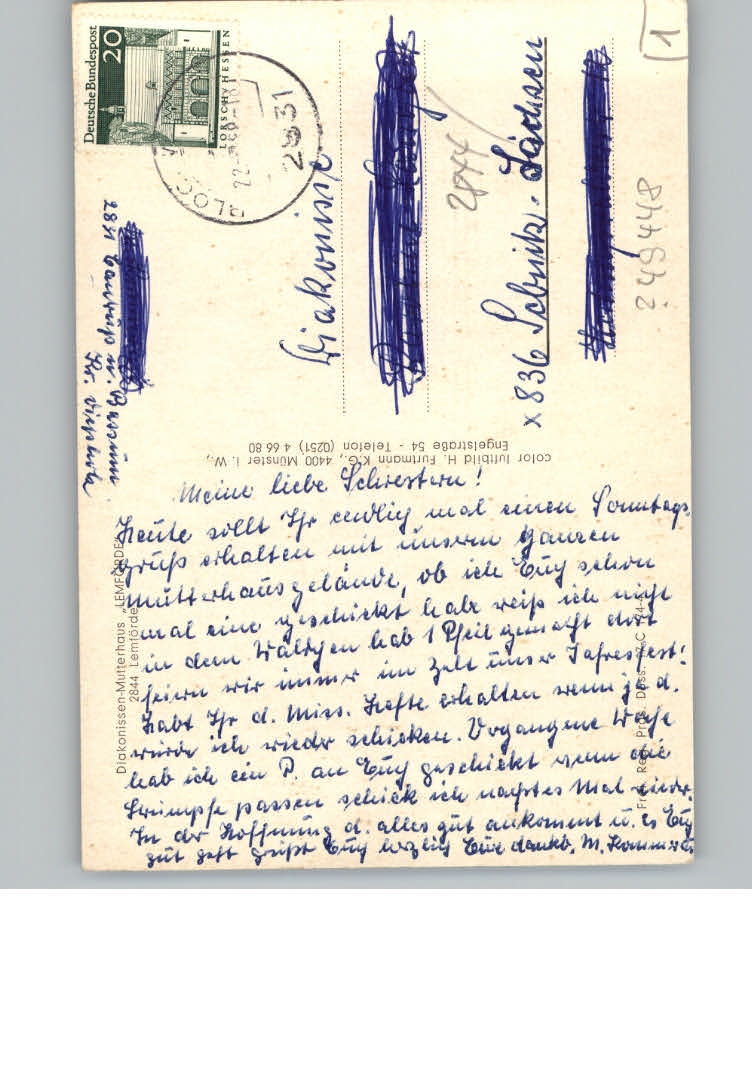 Deutsche Bundespost
20
LORSCH / HESSEN
BLOC
22.
2831
1
Diakonisse
2844
x 836 Sebnitz - Sachsen
249448
2831
Diakonissen-Mutterhaus "LEMFÖRDE"
2844 Lemförde
color luftbild H. Furtmann K.G., 4400 Münster i. W.,
Engelstraße 54 - Telefon (0251) 4 66 80
Frei. Reg. Präs. Düss.
Meine liebe Schwestern!
Heute sollt Ihr endlich mal einen Sonntags-
gruß erhalten mit unserm ganzen
Mutterhausgelände, ob ich Euch schon
mal eine geschickt habe weiß ich nicht
in dem Wäldchen hab 1 Pfeil gemacht dort
feiern wir immer im Zelt unser Jahresfest!
Habt Ihr d. Miss. Hefte erhalten wenn ja d.
würde ich wieder schicken. Vergangene Woche
hab ich ein P. an Euch geschickt wenn die
Strümpfe passen schick ich nächstes Mal wieder.
In der Hoffnung d. alles gut ankommt u. es Euch
gut geht grüßt Euch herzlich Eure dankb. M.